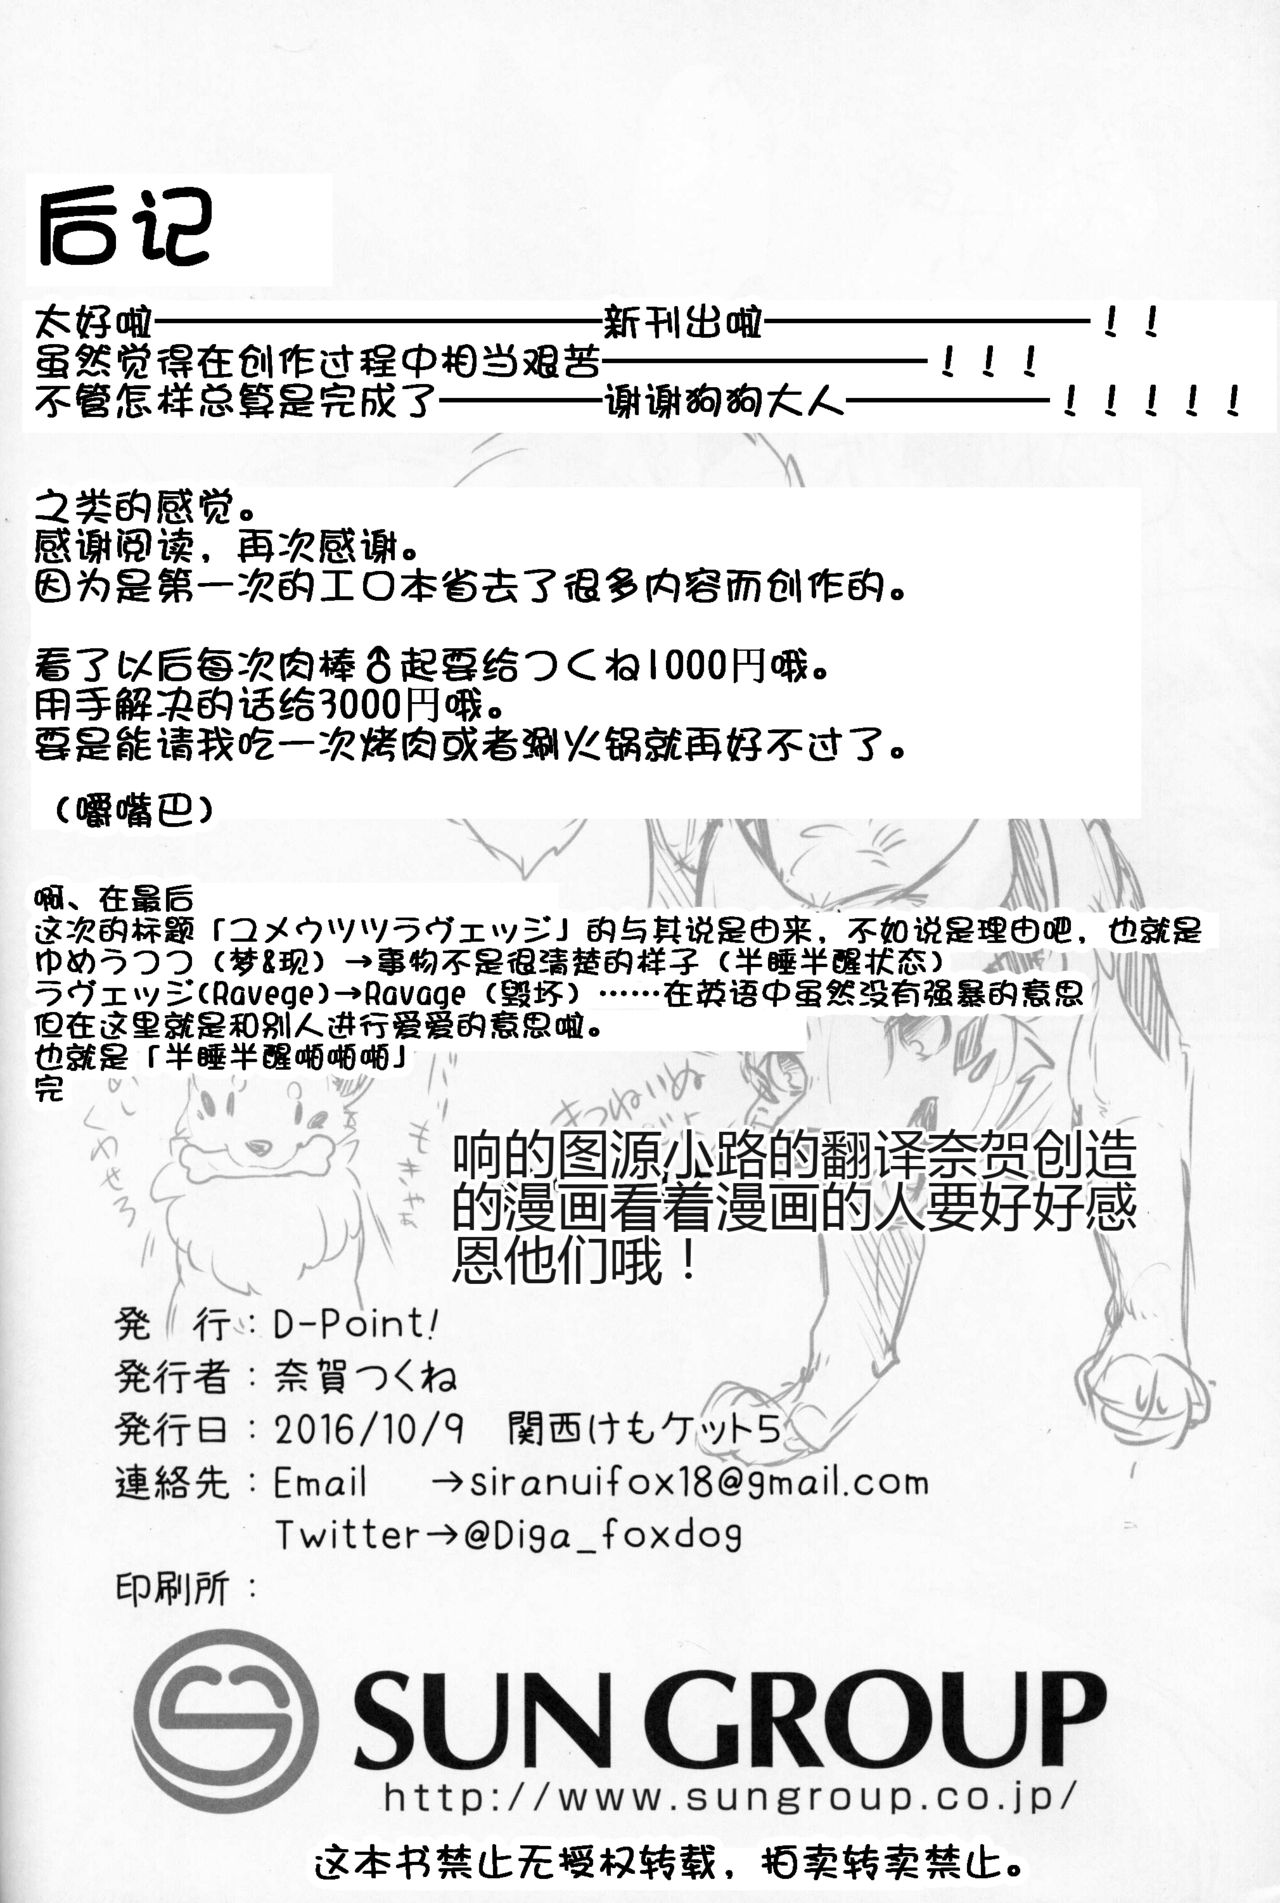 后记
太好啦———————————新刊出啦————————！！
虽然觉得在创作过程中相当艰苦————————！！！
不管怎样总算是完成了————谢谢狗狗大人—————！！！！！
之类的感觉。
感谢阅读，再次感谢。
因为是第一次的工口本省去了很多内容而创作的。
看了以后每次肉棒♂起要给つくね1000円哦。
用手解决的话给3000円哦。
要是能请我吃一次烤肉或者涮火锅就再好不过了。
（嚼嘴巴）
啊、在最后
这次的标题「ユメウツツラヴェッジ」的与其说是由来，不如说是理由吧，也就是
ゆめうつつ（梦&现）→事物不是很清楚的样子（半睡半醒状态）
ラヴェッジ(Ravege)→Ravage（毁坏）……在英语中虽然没有强暴的意思
但在这里就是和别人进行爱爱的意思啦。
也就是「半睡半醒啪啪啪」
完
めし
くわせろ
もきゃぁ
きつねいぬ
响的图源小路的翻译奈贺创造
的漫画看着漫画的人要好好感
恩他们哦！
発　行：D-Point!
発行者：奈賀つくね
発行日：2016/10/9　関西けもケット5
連絡先：Email　→siranuifox18@gmail.com
Twitter→@Diga_foxdog
印刷所：
SUN GROUP
http://www.sungroup.co.jp/
这本书禁止无授权转载，拍卖转卖禁止。